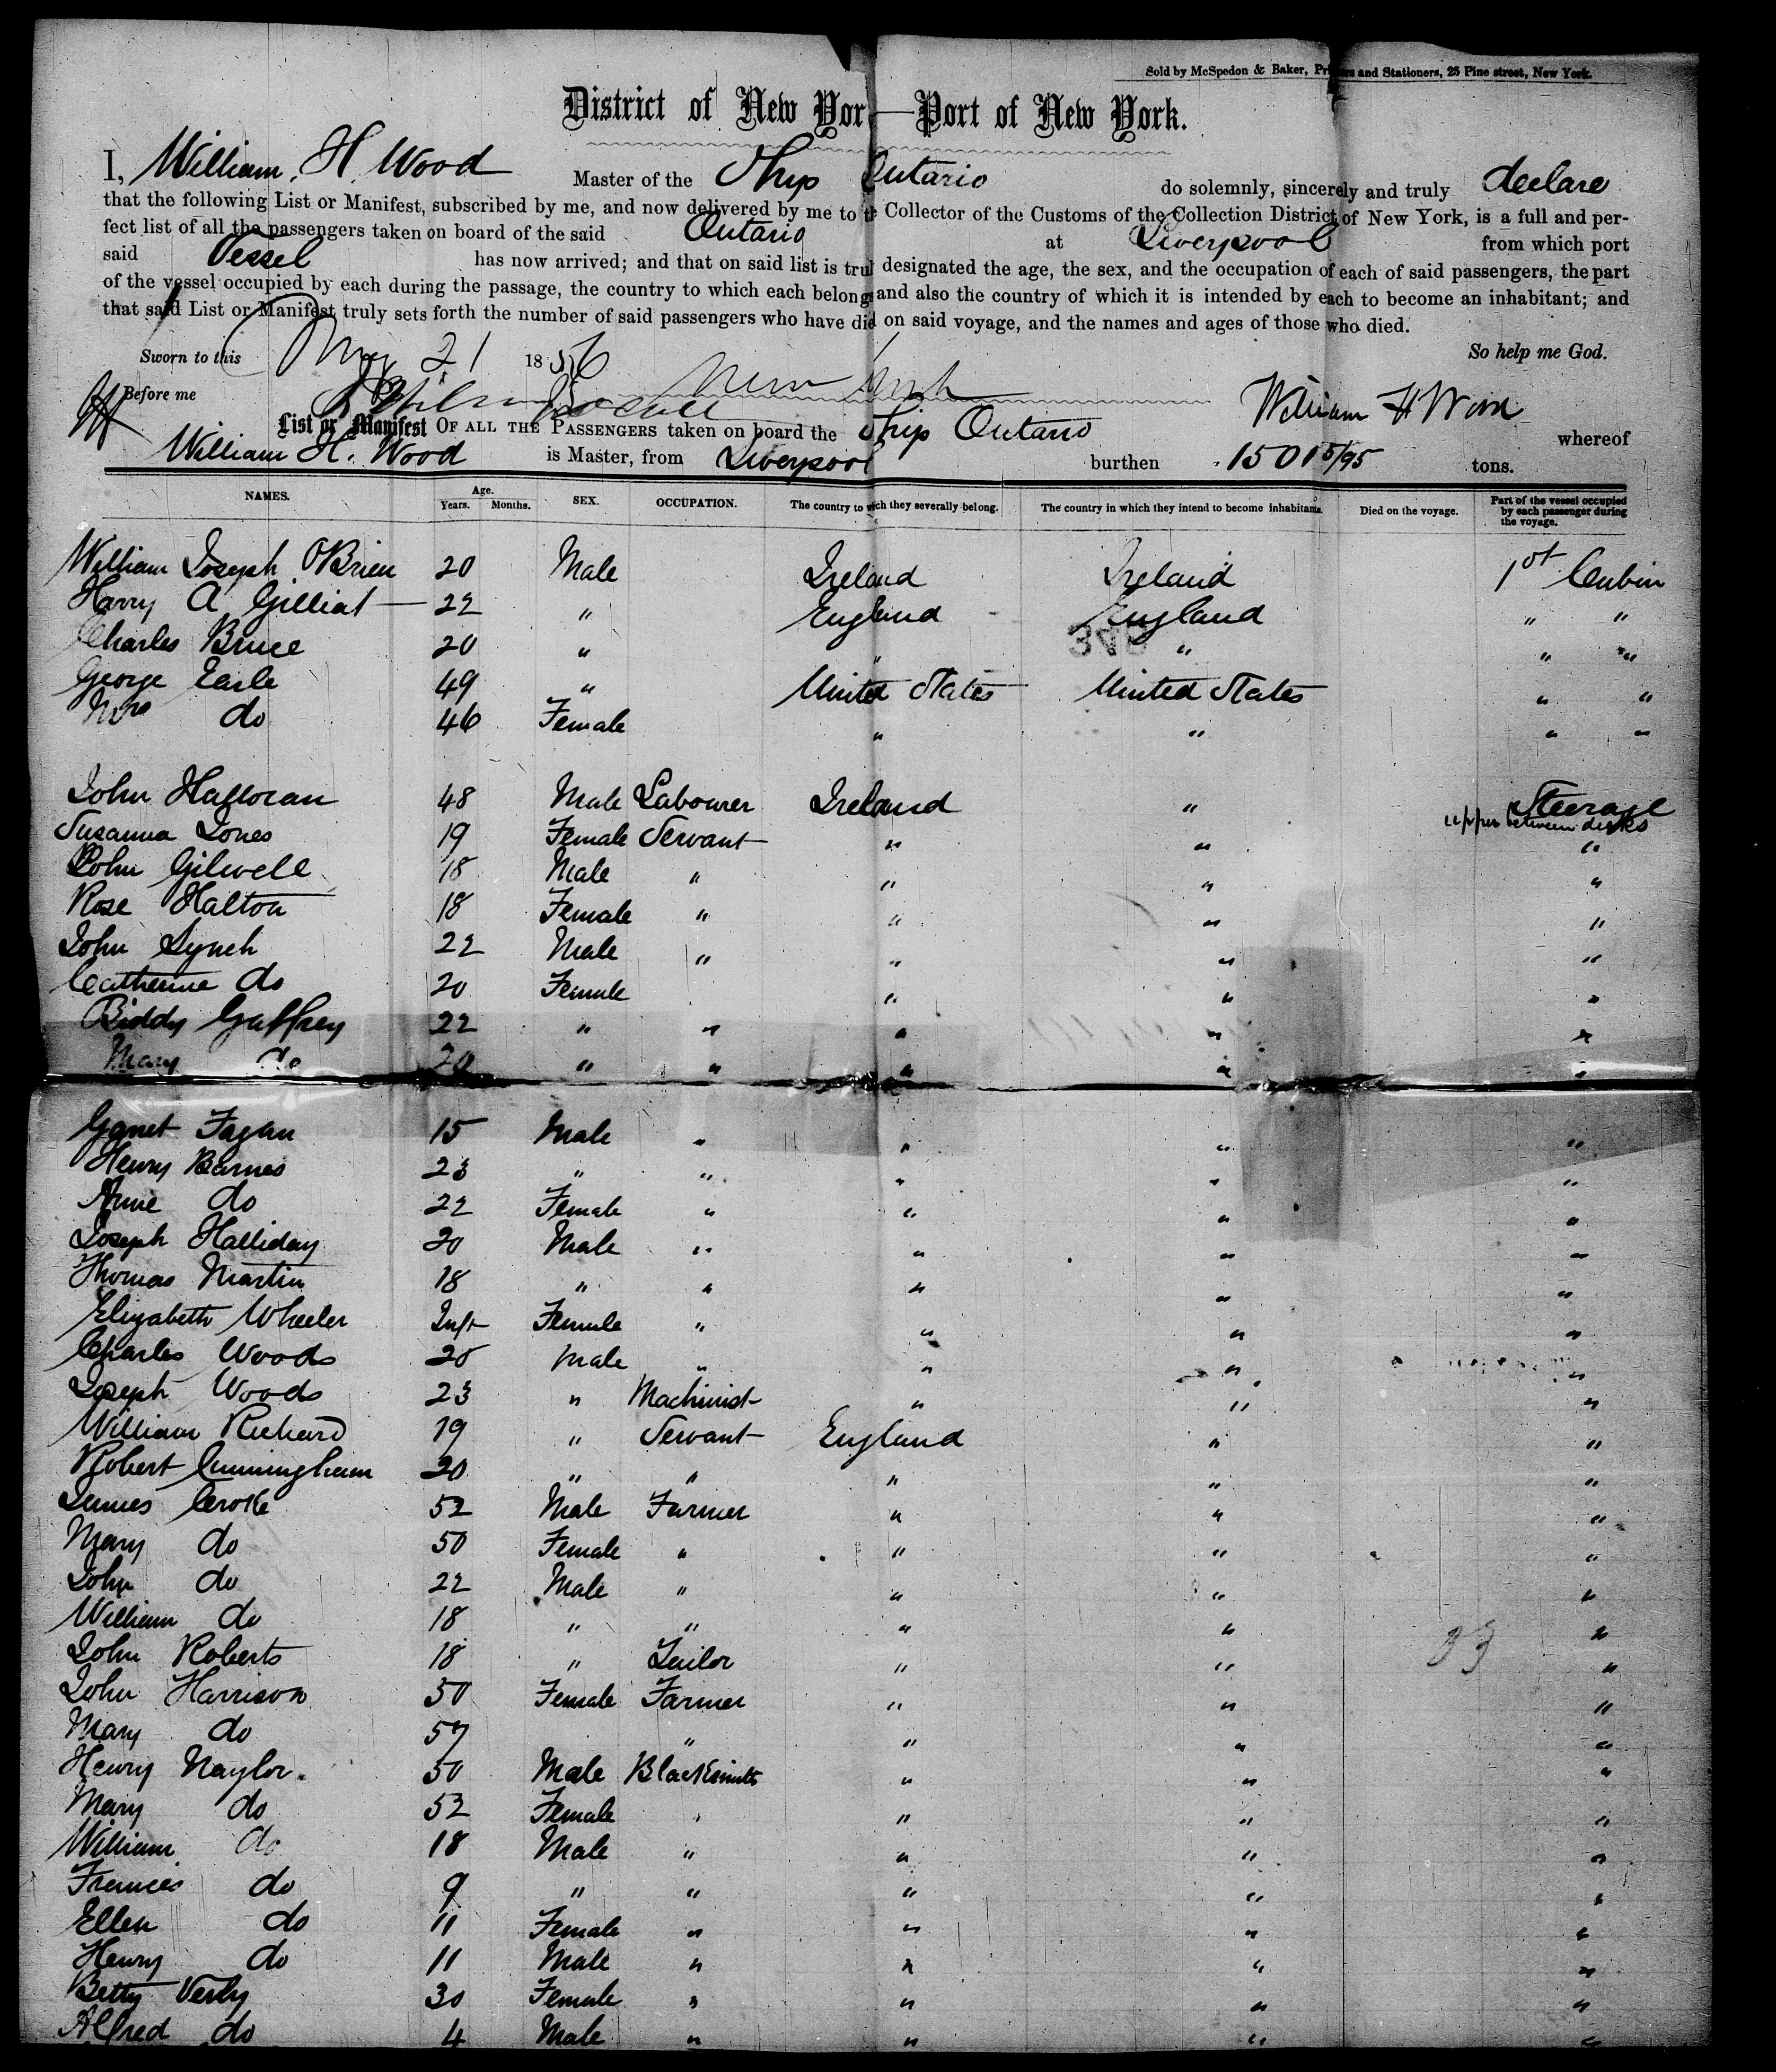 Sold by McSpedon & Baker, Printers and Stationers, 25 Pine street, New York.
District of New York—Port of New York.
I, William H. Wood Master of the Ship Ontario do solemnly, sincerely and truly declare
that the following List or Manifest, subscribed by me, and now delivered by me to the Collector of the Customs of the Collection District of New York, is a full and per-
fect list of all the passengers taken on board of the said Ontario at Liverpool from which port
said Vessel has now arrived; and that on said list is truly designated the age, the sex, and the occupation of each of said passengers, the part
of the vessel occupied by each during the passage, the country to which each belongs and also the country of which it is intended by each to become an inhabitant; and
that said List or Manifest truly sets forth the number of said passengers who have died on said voyage, and the names and ages of those who died.
So help me God.
Sworn to this May 21 1856
Before me William H Wood
List or Manifest OF ALL THE PASSENGERS taken on board the Ship Ontario whereof
William H. Wood is Master, from Liverpool burthen 1501 5/95 tons.
NAMES. Age. Years. Months. SEX. OCCUPATION. The country to which they severally belong. The country in which they intend to become inhabitants. Died on the voyage. Part of the vessel occupied by each passenger during the voyage.
William Joseph O'Brien 20 Male Ireland Ireland 1st Cabin
Harry A Gilliat 22 " England England " "
Charles Bruce 20 " " " " "
George Earle 49 " United States United States " "
Mrs do 46 Female " " " "
John Halloran 48 Male Labourer Ireland " Steerage
upper between decks
Susanna Jones 19 Female Servant " " "
John Gilwell 18 Male " " " "
Rose Halton 18 Female " " " "
John Lynch 22 Male " " " "
Catherine do 20 Female " " "
Biddy Gaffney 22 " " " " "
Mary do 20 " " " " "
Garret Fagan 15 Male " " " "
Henry Barnes 23 " " " " "
Anne do 22 Female " " " "
Joseph Halliday 20 Male " " " "
Thomas Martin 18 " " " " "
Elizabeth Wheeler Inft Female " " " "
Charles Woods 20 Male " " " "
Joseph Woods 23 " Machinist " " "
William Richard 19 " Servant England " "
Robert Cunningham 20 " " " " "
James Croke 52 Male Farmer " " "
Mary do 50 Female " " " "
John do 22 Male " " " "
William do 18 " " " " "
John Roberts 18 " Tailor " " "
John Harrison 50 Female Farmer " " "
Mary do 57 " " " "
Henry Naylor. 50 Male Blacksmith " " "
Mary do 52 Female " " " "
William do 18 Male " " " "
Frances do 9 " " " " "
Ellen do 11 Female " " " "
Henry do 11 Male " " " "
Betty Verly 30 Female " " " "
Alfred do 4 Male " " " "